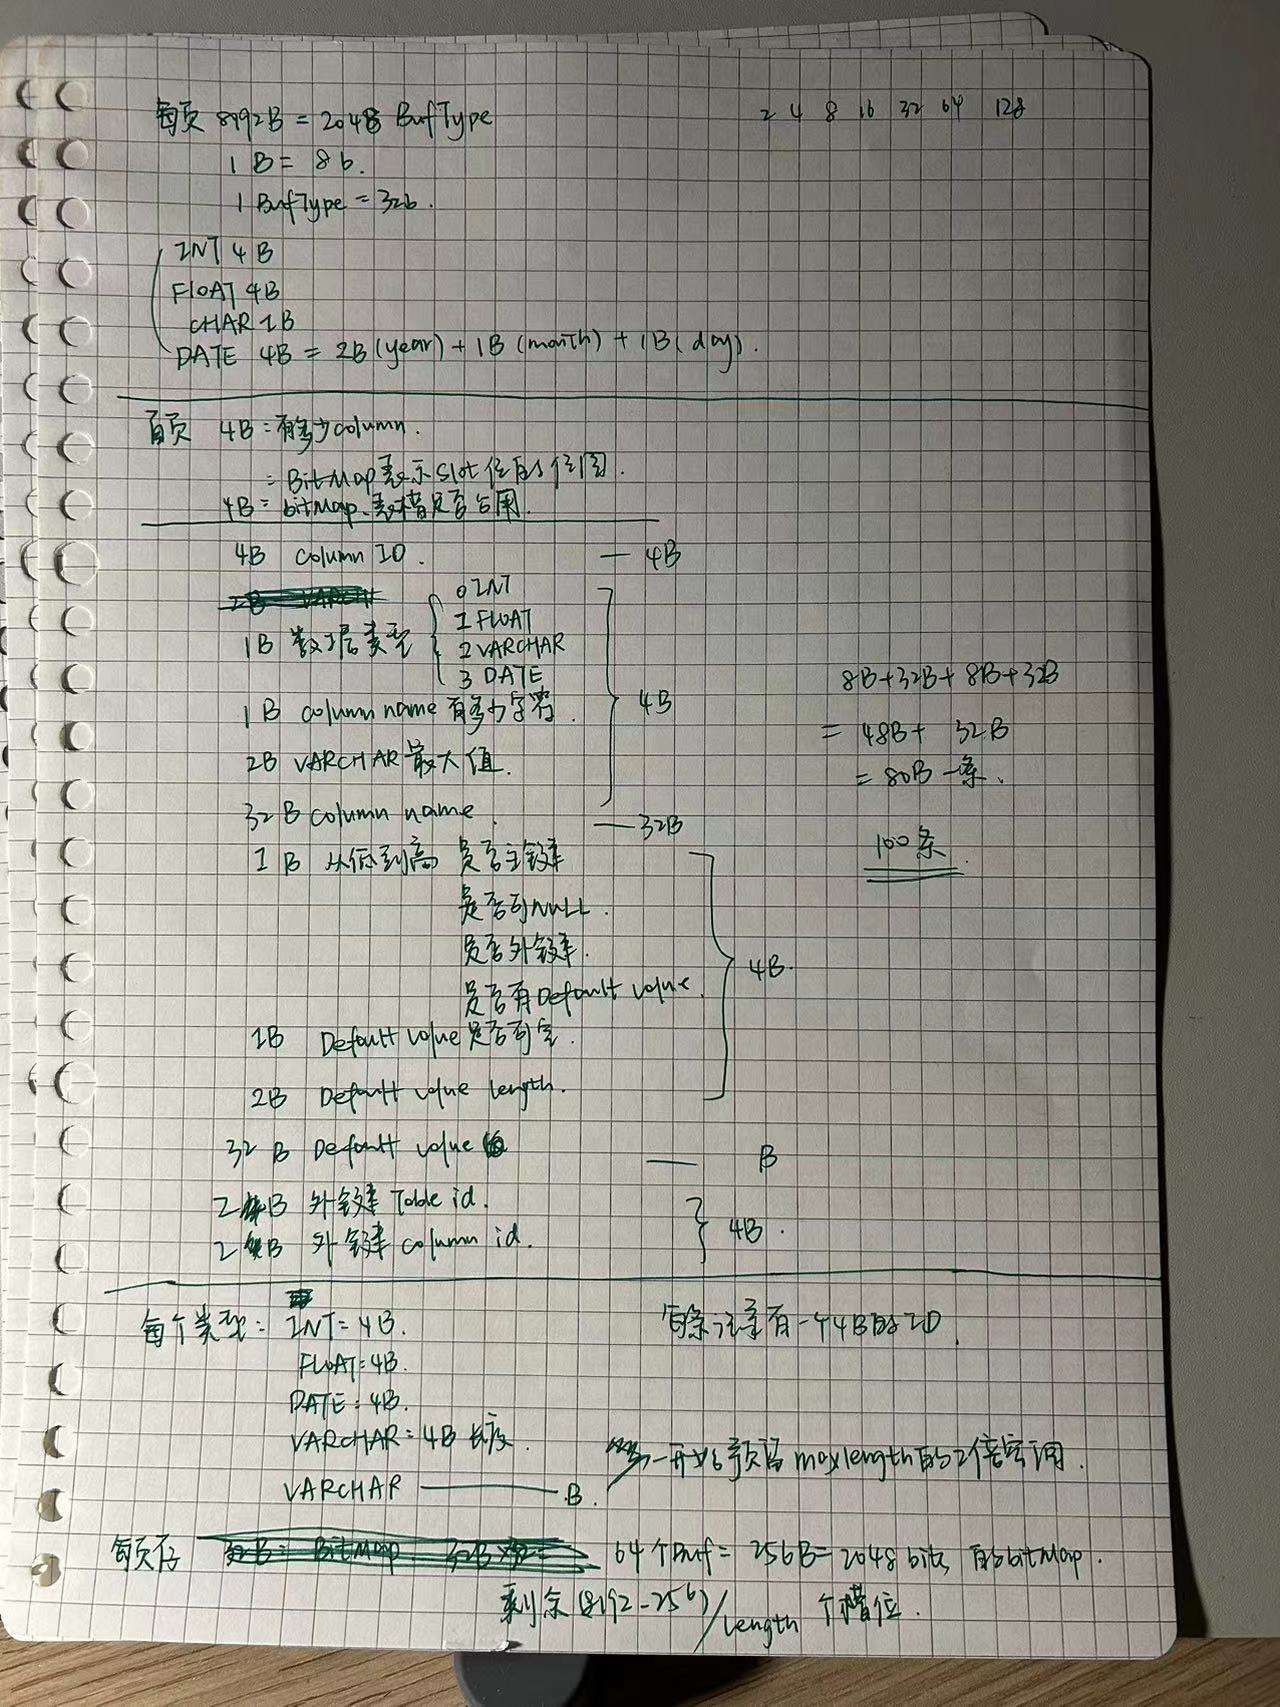 每页 8992B = 2048 BufType
2 4 8 16 32 64 128
1 B = 8b.
1 BufType = 32b.
INT 4B
FLOAT 4B
CHAR 1B
DATE 4B = 2B(year) + 1B(month) + 1B(day).
首页 4B = 有多少column.
= BitMap表示Slot位的位图.
4B = bitMap、表槽是否占用.
4B column ID. — 4B
1B 数据类型
0 INT
1 FLOAT
2 VARCHAR
3 DATE
1B column name 有多少字符.
4B
2B VARCHAR 最大值.
32B column name. — 32B
1B 从低到高 是否主键
是否可NULL.
是否外键.
是否有Default value.
1B Default value是否可空.
2B Default value length.
4B.
32B Default value — B
2B 外键 Table id.
2B 外键 column id.
4B.
8B+32B+8B+32B
= 48B + 32B
= 80B 一条.
100条.
每个类型: INT = 4B.
FLOAT = 4B.
DATE: 4B.
VARCHAR: 4B 长度.
VARCHAR — B.
每条记录有一个4B的ID.
一开始预留 maxlength的2倍空间.
每页存 64个Buf = 256B = 2048 bits 的bitMap.
剩余(8192-256)/length 个槽位.